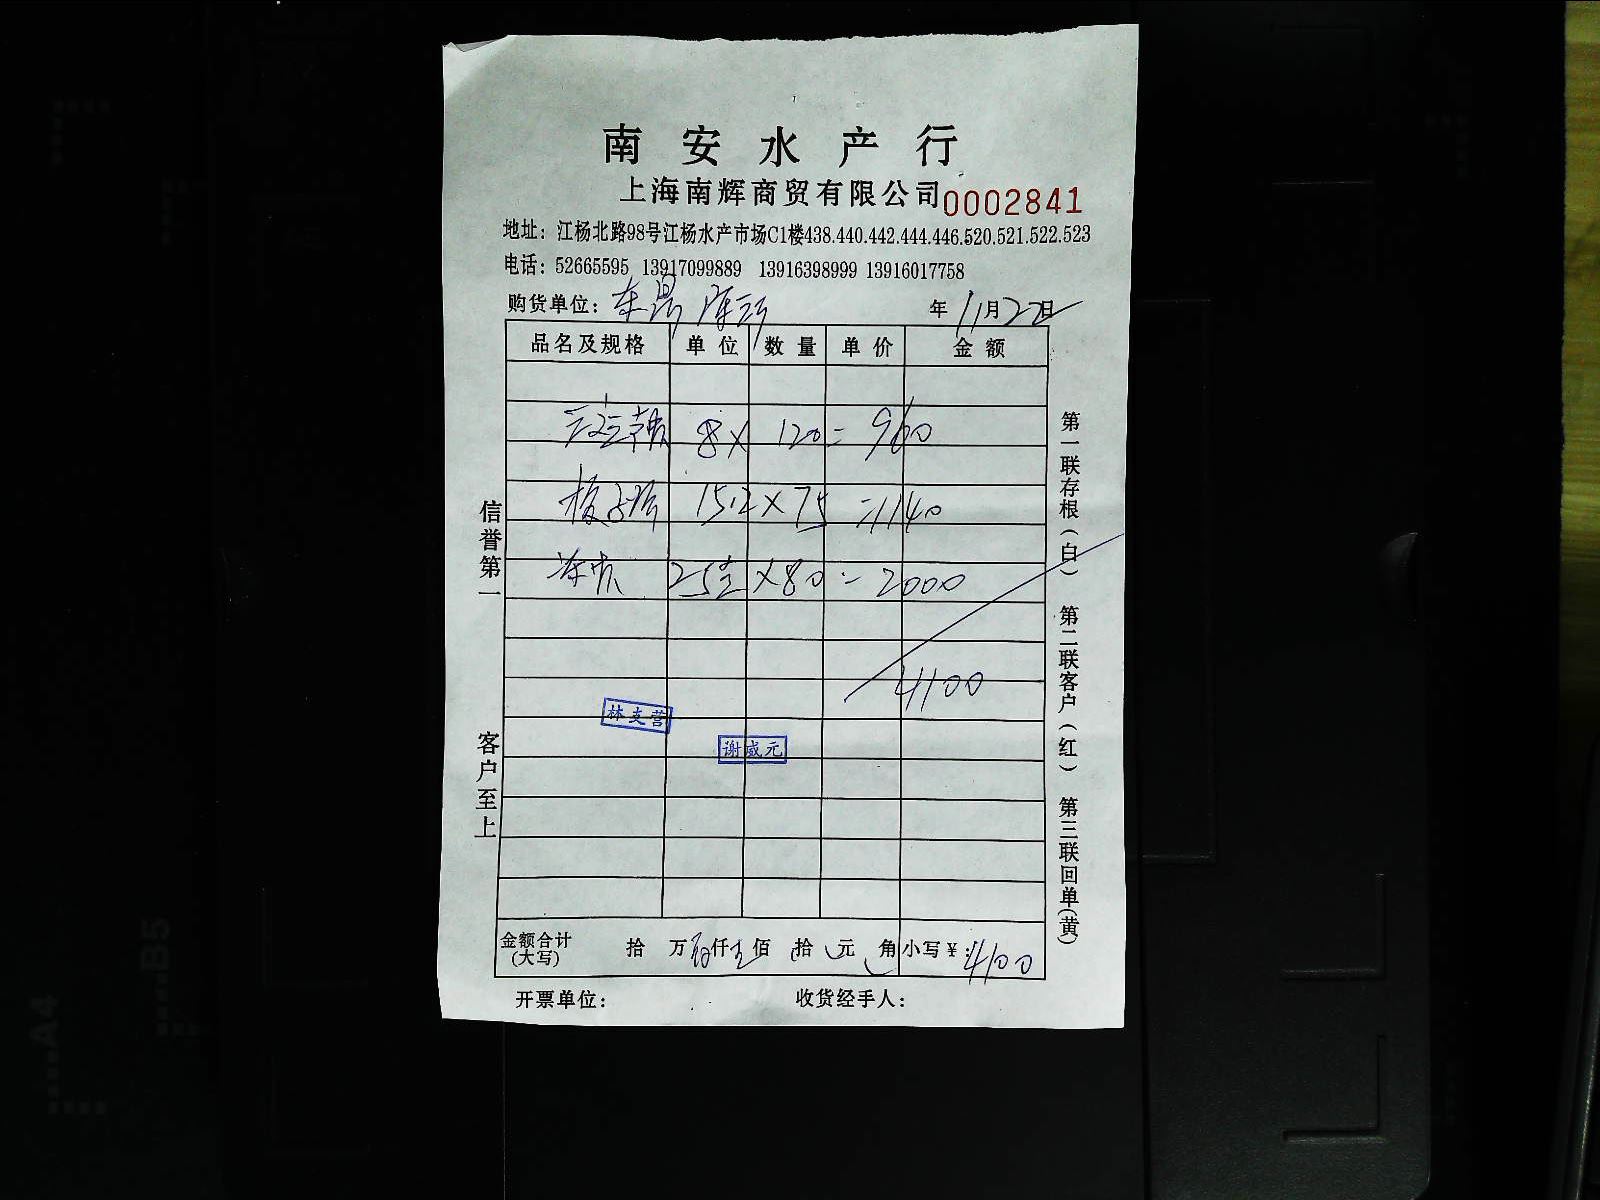 南安水产行
上海南辉商贸有限公司 0002841
地址：江杨北路98号江杨水产市场C1楼438.440.442.444.446.520.521.522.523
电话：52665595 13917099889 13916398999 13916017758
购货单位： 年11月22日
品名及规格 单位 数量 单价 金额
8× 120= 960
15.2×75 =1140
25×80=2000
4100
林支营
谢咸元
金额合计（大写） 拾 万 仟 佰 拾 元 角 小写￥：4100
开票单位： 收货经手人：
信誉第一 客户至上
第一联存根（白） 第二联客户（红） 第三联回单（黄）
B5
A4